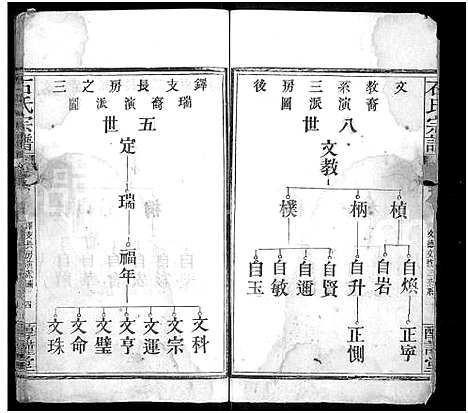 文教裔系三房後
演派圖
八世
文教
楨
柄
樸
自煥
自岩
自升
自賢
自邇
自敏
自玉
正寧
正惻
石氏宗譜
鐸支長房之三
瑞裔演派圖
五世
定
瑞
福年
文科
文宗
文運
文亨
文璧
文命
文珠
石氏宗譜
四